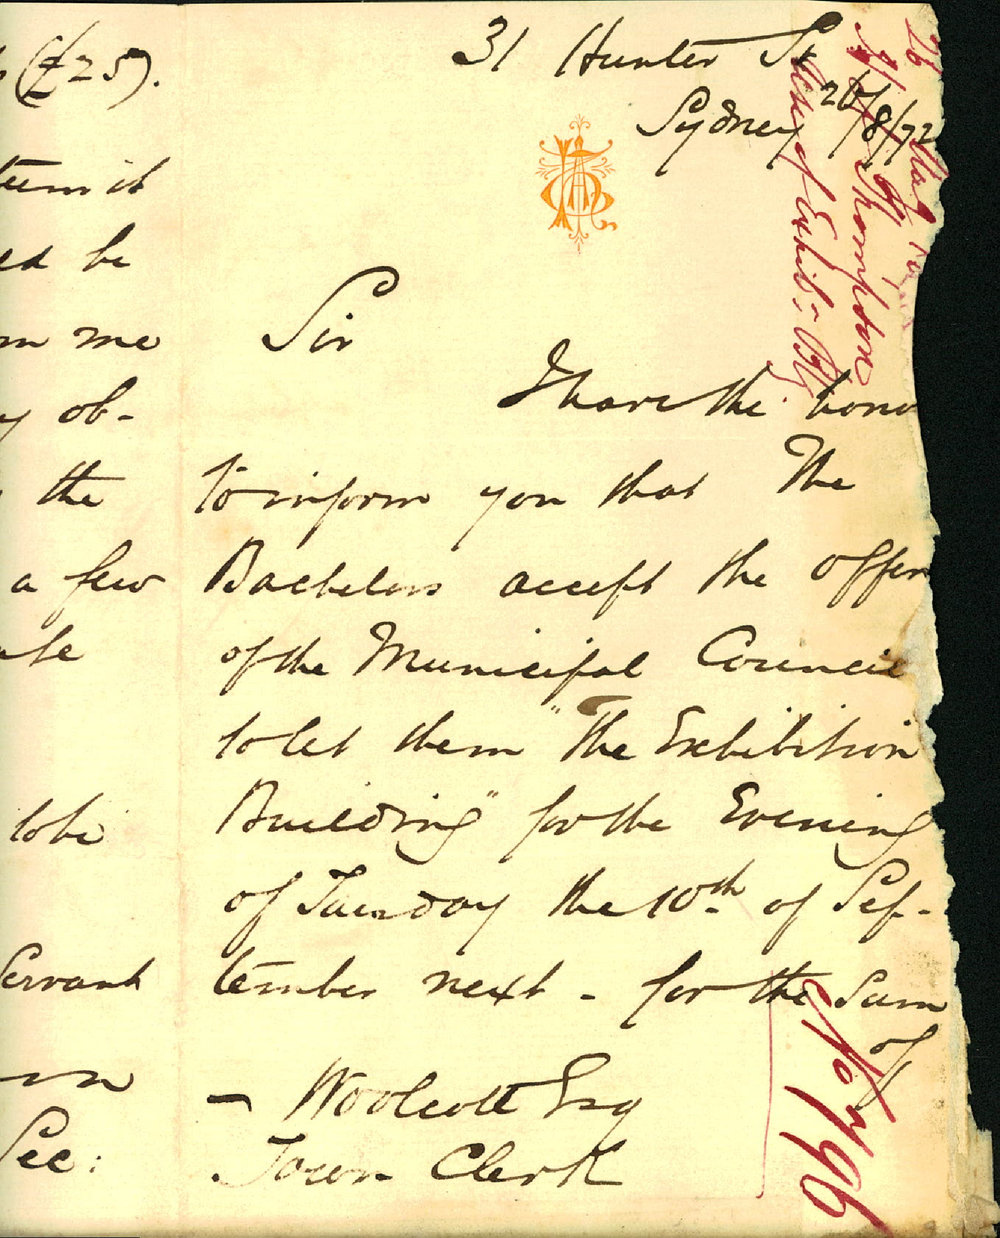 31 Hunter St
Sydney 26/8/72
Sir
I have the honor
to inform you that The
Bachelors accept the offer
of the Municipal Council
to let them "The Exhibition
Building" for the Evening
of Tuesday the 10th of Sep-
tember next - for the Sum
of
- Woolcott Esq
Town Clerk
(£25).
it
be
me
ob-
the
a few
to be
Servant
Sec:
26
Thompson
Use of Exhibn Bldg
No 796